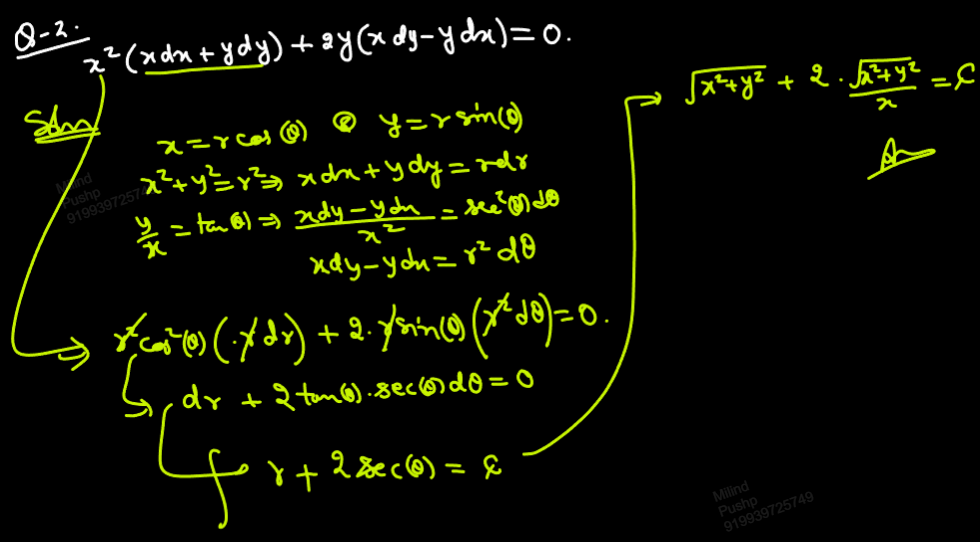 Q-2.
x²(xdx + ydy) + 2y(xdy - ydx) = 0.
Soln
x = r cos(θ) & y = r sin(θ)
x² + y² = r² ⇒ xdx + ydy = rdr
y/x = tan(θ) ⇒ (xdy - ydx)/x² = sec²(θ)dθ
xdy - ydx = r² dθ
⇒ r² cos²(θ) (·r dr) + 2·r sin(θ) (r² dθ) = 0.
dr + 2 tan(θ)·sec(θ) dθ = 0
∫ r + 2 sec(θ) = c
→ √(x² + y²) + 2 · √(x² + y²)/x = c
Ans
Milind
Pushp
919939725749
Milind
Pushp
919939725749